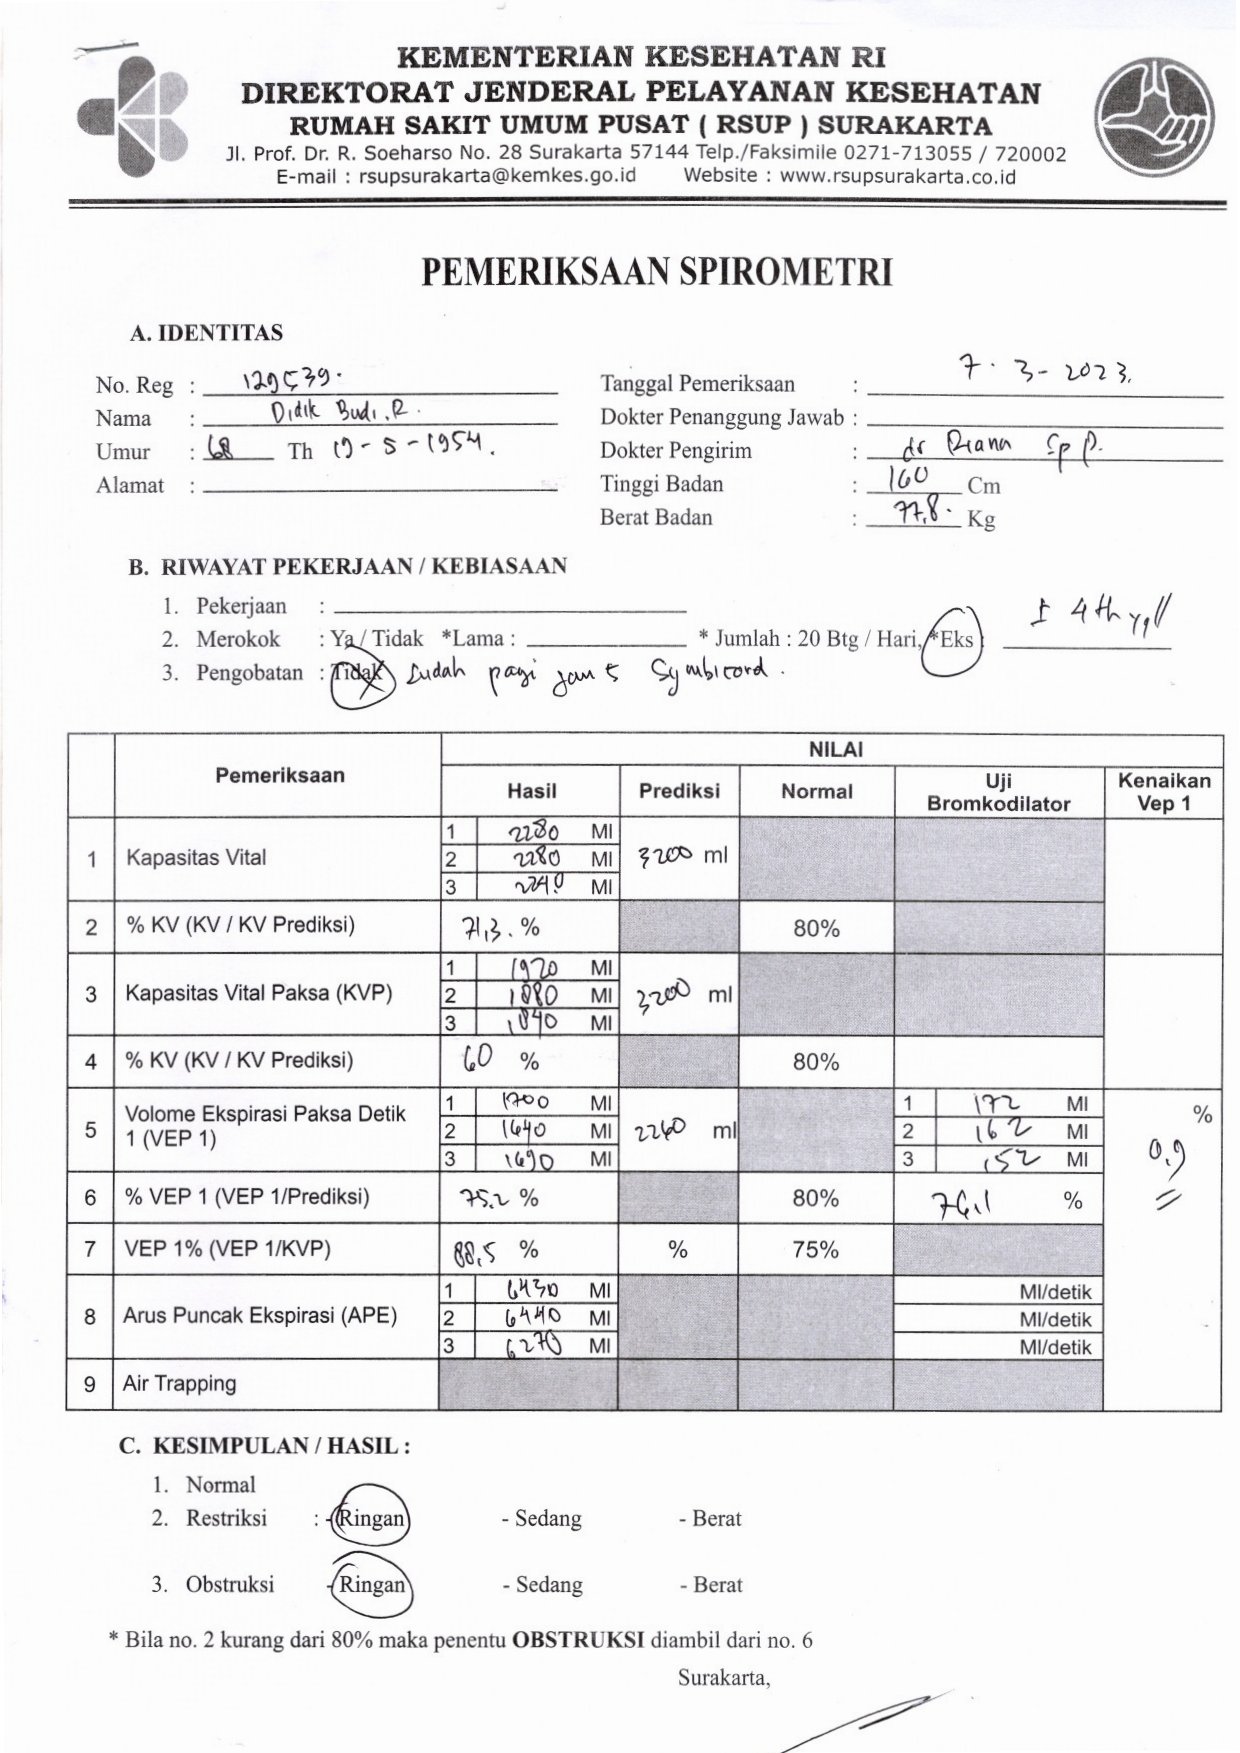 KEMENTERIAN KESEHATAN RI
DIREKTORAT JENDERAL PELAYANAN KESEHATAN
RUMAH SAKIT UMUM PUSAT ( RSUP ) SURAKARTA
Jl. Prof. Dr. R. Soeharso No. 28 Surakarta 57144 Telp./Faksimile 0271-713055 / 720002
E-mail : rsupsurakarta@kemkes.go.id Website : www.rsupsurakarta.co.id
PEMERIKSAAN SPIROMETRI
A. IDENTITAS
No. Reg : 129539. Tanggal Pemeriksaan : 7 - 3 - 2023.
Nama : Didik Budi.R. Dokter Penanggung Jawab :
Umur : 68 Th 19 - 5 - 1954. Dokter Pengirim : dr Riana Sp P.
Alamat : Tinggi Badan : 160 Cm
Berat Badan : 77,8. Kg
B. RIWAYAT PEKERJAAN / KEBIASAAN
1. Pekerjaan :
2. Merokok : Ya / Tidak *Lama : * Jumlah : 20 Btg / Hari, *Eks ± 4 th yg ll
3. Pengobatan : Tidak Sudah pagi jam 5 Symbicord.
Pemeriksaan NILAI
Hasil Prediksi Normal Uji Bromkodilator Kenaikan Vep 1
1 Kapasitas Vital 1 2280 Ml 3200 ml
2 2280 Ml
3 2240 Ml
2 % KV (KV / KV Prediksi) 71,3. % 80%
3 Kapasitas Vital Paksa (KVP) 1 1920 Ml 3200 ml
2 1880 Ml
3 1840 Ml
4 % KV (KV / KV Prediksi) 60 % 80%
5 Volome Ekspirasi Paksa Detik 1 (VEP 1) 1 1700 Ml 2260 ml 1 172 Ml % 0,9
2 1640 Ml 2 162 Ml
3 1690 Ml 3 152 Ml
6 % VEP 1 (VEP 1/Prediksi) 75.2 % 80% 76,1 %
7 VEP 1% (VEP 1/KVP) 88,5 % % 75%
8 Arus Puncak Ekspirasi (APE) 1 6430 Ml Ml/detik
2 6440 Ml Ml/detik
3 6270 Ml Ml/detik
9 Air Trapping
C. KESIMPULAN / HASIL :
1. Normal
2. Restriksi : - Ringan - Sedang - Berat
3. Obstruksi - Ringan - Sedang - Berat
* Bila no. 2 kurang dari 80% maka penentu OBSTRUKSI diambil dari no. 6
Surakarta,